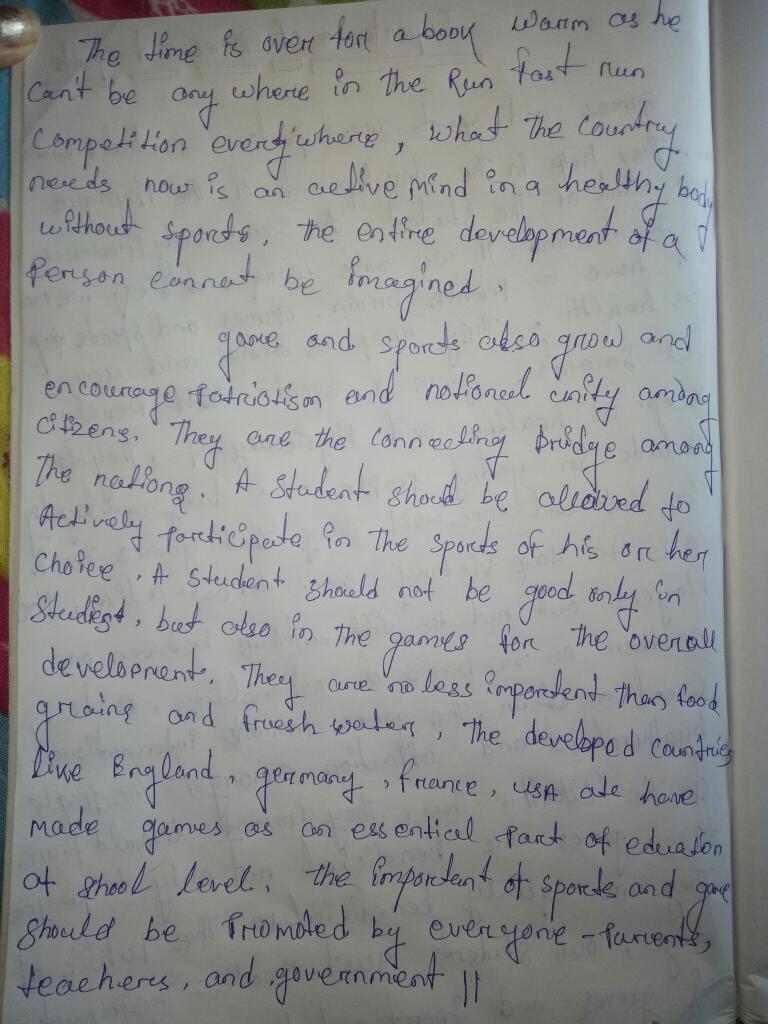 The time is over for a book warm as he
Can't be any where in the Run fast run
Competition everywhere, what the country
needs now is an active mind in a healthy body
without sports, the entire development of a
Person cannot be imagined.
game and sports also grow and
encourage patriotism and national unity among
citizens. They are the connecting bridge among
The nations. A student should be allowed to
Actively participate in the sports of his or her
choice. A student should not be good only in
studies, but also in the games for the overall
development. They are no less importent than food
grains and fruesh water, The developed countries
like England, germany, france, USA ate have
made games as an essentical part of eduaton
at shool level. the important of sports and game
should be Promoted by everyone - Parents,
teachers, and government ||